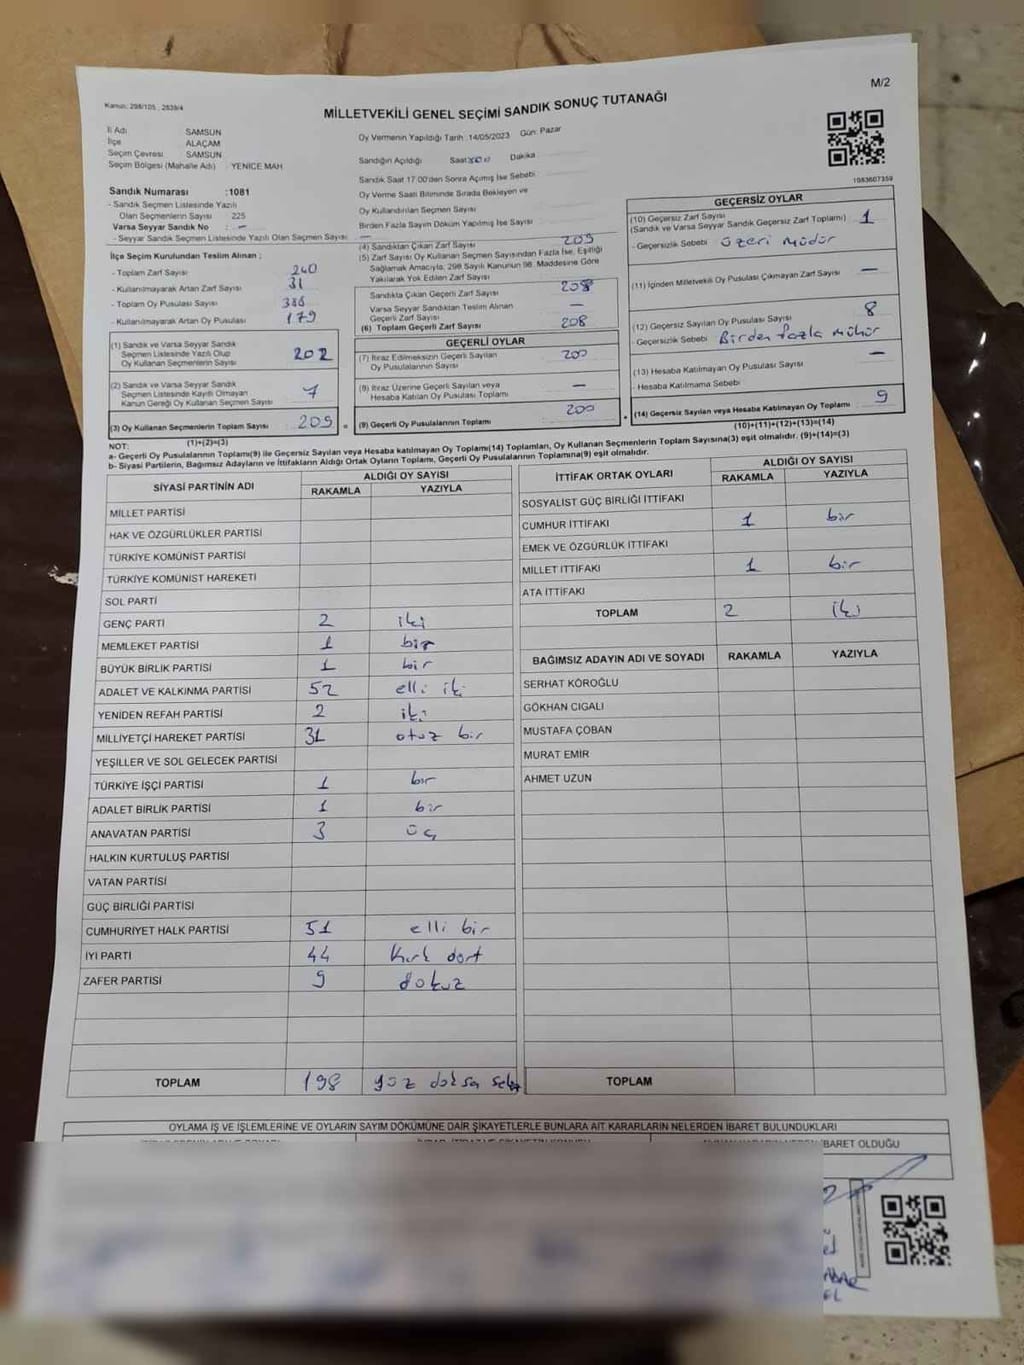 M/2
Kanun: 298/105 , 2839/4
MİLLETVEKİLİ GENEL SEÇİMİ SANDIK SONUÇ TUTANAĞI
İl Adı SAMSUN
İlçe ALAÇAM
Seçim Çevresi SAMSUN
Seçim Bölgesi (Mahalle Adı) YENİCE MAH
Sandık Numarası :1081
- Sandık Seçmen Listesinde Yazılı
Olan Seçmenlerin Sayısı 225
Varsa Seyyar Sandık No : -
- Seyyar Sandık Seçmen Listesinde Yazılı Olan Seçmen Sayısı —
İlçe Seçim Kurulundan Teslim Alınan :
- Toplam Zarf Sayısı 240
- Kullanılmayarak Artan Zarf Sayısı 31
- Toplam Oy Pusulası Sayısı
- Kullanılmayarak Artan Oy Pusulası 179
(1) Sandık ve Varsa Seyyar Sandık
Seçmen Listesinde Yazılı Olup
Oy Kullanan Seçmenlerin Sayısı 202
(2) Sandık ve Varsa Seyyar Sandık
Seçmen Listesinde Kayıtlı Olmayan
Kanun Gereği Oy Kullanan Seçmen Sayısı 7
(3) Oy Kullanan Seçmenlerin Toplam Sayısı 209 =
(1)+(2)=(3)
Oy Vermenin Yapıldığı Tarih :14/05/2023 Gün: Pazar
Sandığın Açıldığı Saat Dakika
Sandık Saat 17:00'den Sonra Açılmış İse Sebebi
Oy Verme Saati Bitiminde Sırada Bekleyen ve
Oy Kullandırılan Seçmen Sayısı
Birden Fazla Sayım Döküm Yapılmış İse Sayısı
(4) Sandıktan Çıkan Zarf Sayısı 209
(5) Zarf Sayısı Oy Kullanan Seçmen Sayısından Fazla İse, Eşitliği
Sağlamak Amacıyla, 298 Sayılı Kanunun 98. Maddesine Göre
Yakılarak Yok Edilen Zarf Sayısı
Sandıkta Çıkan Geçerli Zarf Sayısı 208
Varsa Seyyar Sandıktan Teslim Alınan
Geçerli Zarf Sayısı —
(6) Toplam Geçerli Zarf Sayısı 208
GEÇERLİ OYLAR
(7) İtiraz Edilmeksizin Geçerli Sayılan
Oy Pusulalarının Sayısı 200
(8) İtiraz Üzerine Geçerli Sayılan veya
Hesaba Katılan Oy Pusulası Toplamı —
(9) Geçerli Oy Pusulalarının Toplamı 200 +
1083607359
GEÇERSİZ OYLAR
(10) Geçersiz Zarf Sayısı
(Sandık ve Varsa Seyyar Sandık Geçersiz Zarf Toplamı) 1
- Geçersizlik Sebebi üzeri müdür
(11) İçinden Milletvekili Oy Pusulası Çıkmayan Zarf Sayısı —
(12) Geçersiz Sayılan Oy Pusulası Sayısı 8
- Geçersizlik Sebebi Birden fazla mühür
(13) Hesaba Katılmayan Oy Pusulası Sayısı —
- Hesaba Katılmama Sebebi
(14) Geçersiz Sayılan veya Hesaba Katılmayan Oy Toplamı 9
(10)+(11)+(12)+(13)=(14)
NOT:
a- Geçerli Oy Pusulalarının Toplamı(9) ile Geçersiz Sayılan veya Hesaba katılmayan Oy Toplamı(14) Toplamları, Oy Kullanan Seçmenlerin Toplam Sayısına(3) eşit olmalıdır. (9)+(14)=(3)
b- Siyasi Partilerin, Bağımsız Adayların ve İttifakların Aldığı Ortak Oyların Toplamı, Geçerli Oy Pusulalarının Toplamına(9) eşit olmalıdır.
SİYASİ PARTİNİN ADI ALDIĞI OY SAYISI
RAKAMLA YAZIYLA
MİLLET PARTİSİ
HAK VE ÖZGÜRLÜKLER PARTİSİ
TÜRKİYE KOMÜNİST PARTİSİ
TÜRKİYE KOMÜNİST HAREKETİ
SOL PARTİ
GENÇ PARTİ 2 iki
MEMLEKET PARTİSİ 1 bir
BÜYÜK BİRLİK PARTİSİ 1 bir
ADALET VE KALKINMA PARTİSİ 52 elli iki
YENİDEN REFAH PARTİSİ 2 iki
MİLLİYETÇİ HAREKET PARTİSİ 31 otuz bir
YEŞİLLER VE SOL GELECEK PARTİSİ
TÜRKİYE İŞÇİ PARTİSİ 1 bir
ADALET BİRLİK PARTİSİ 1 bir
ANAVATAN PARTİSİ 3 üç
HALKIN KURTULUŞ PARTİSİ
VATAN PARTİSİ
GÜÇ BİRLİĞİ PARTİSİ
CUMHURİYET HALK PARTİSİ 51 elli bir
İYİ PARTİ 44 kırk dört
ZAFER PARTİSİ 9 dokuz
TOPLAM 198 yüz doksa
İTTİFAK ORTAK OYLARI ALDIĞI OY SAYISI
RAKAMLA YAZIYLA
SOSYALİST GÜÇ BİRLİĞİ İTTİFAKI
CUMHUR İTTİFAKI 1 bir
EMEK VE ÖZGÜRLÜK İTTİFAKI
MİLLET İTTİFAKI 1 bir
ATA İTTİFAKI
TOPLAM 2 iki
BAĞIMSIZ ADAYIN ADI VE SOYADI RAKAMLA YAZIYLA
SERHAT KÖROĞLU
GÖKHAN CIGALI
MUSTAFA ÇOBAN
MURAT EMİR
AHMET UZUN
TOPLAM
OYLAMA İŞ VE İŞLEMLERİNE VE OYLARIN SAYIM DÖKÜMÜNE DAİR ŞİKAYETLERLE BUNLARA AİT KARARLARIN NELERDEN İBARET BULUNDUKLARI
İBARET OLDUĞU